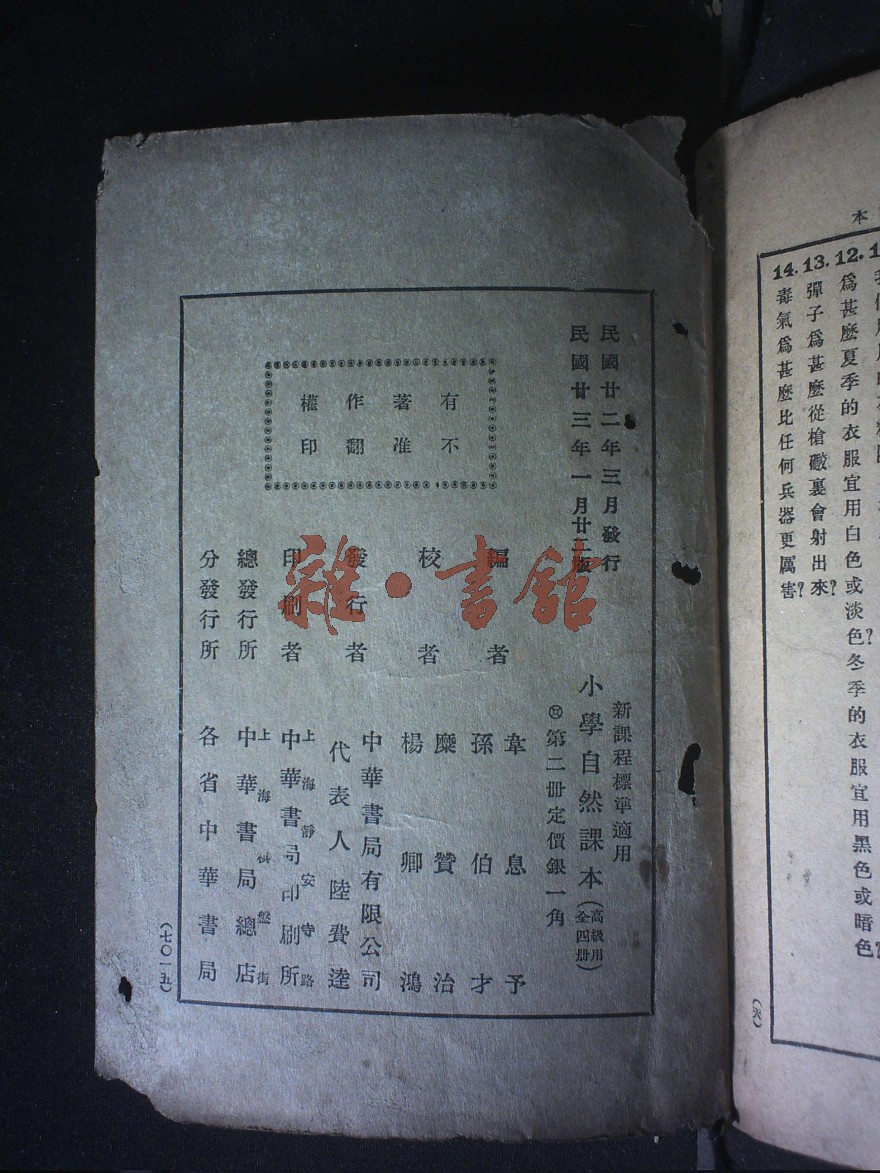 本
我們
12.爲甚麼夏季的衣服宜用白色或淡色?冬季的衣服宜用黑色或暗色
13.彈子爲甚麼從槍礮裏會射出來?
14.毒氣爲甚麼比任何兵器更厲害?
民國廿二年三月發行
民國廿三年一月廿二版
新課程標準適用
小學自然課本(高級用全四册)
第二册定價銀一角
有著作權
不准翻印
編者 韋息予
孫伯才
校者 糜贊治
楊卿鴻
發行者 中華書局有限公司
代表人陸費逵
印刷者 上海靜安寺路
中華書局印刷所
總發行所 上海棋盤街
中華書局總店
分發行所 各省中華書局
(七〇一五)
雜·書館